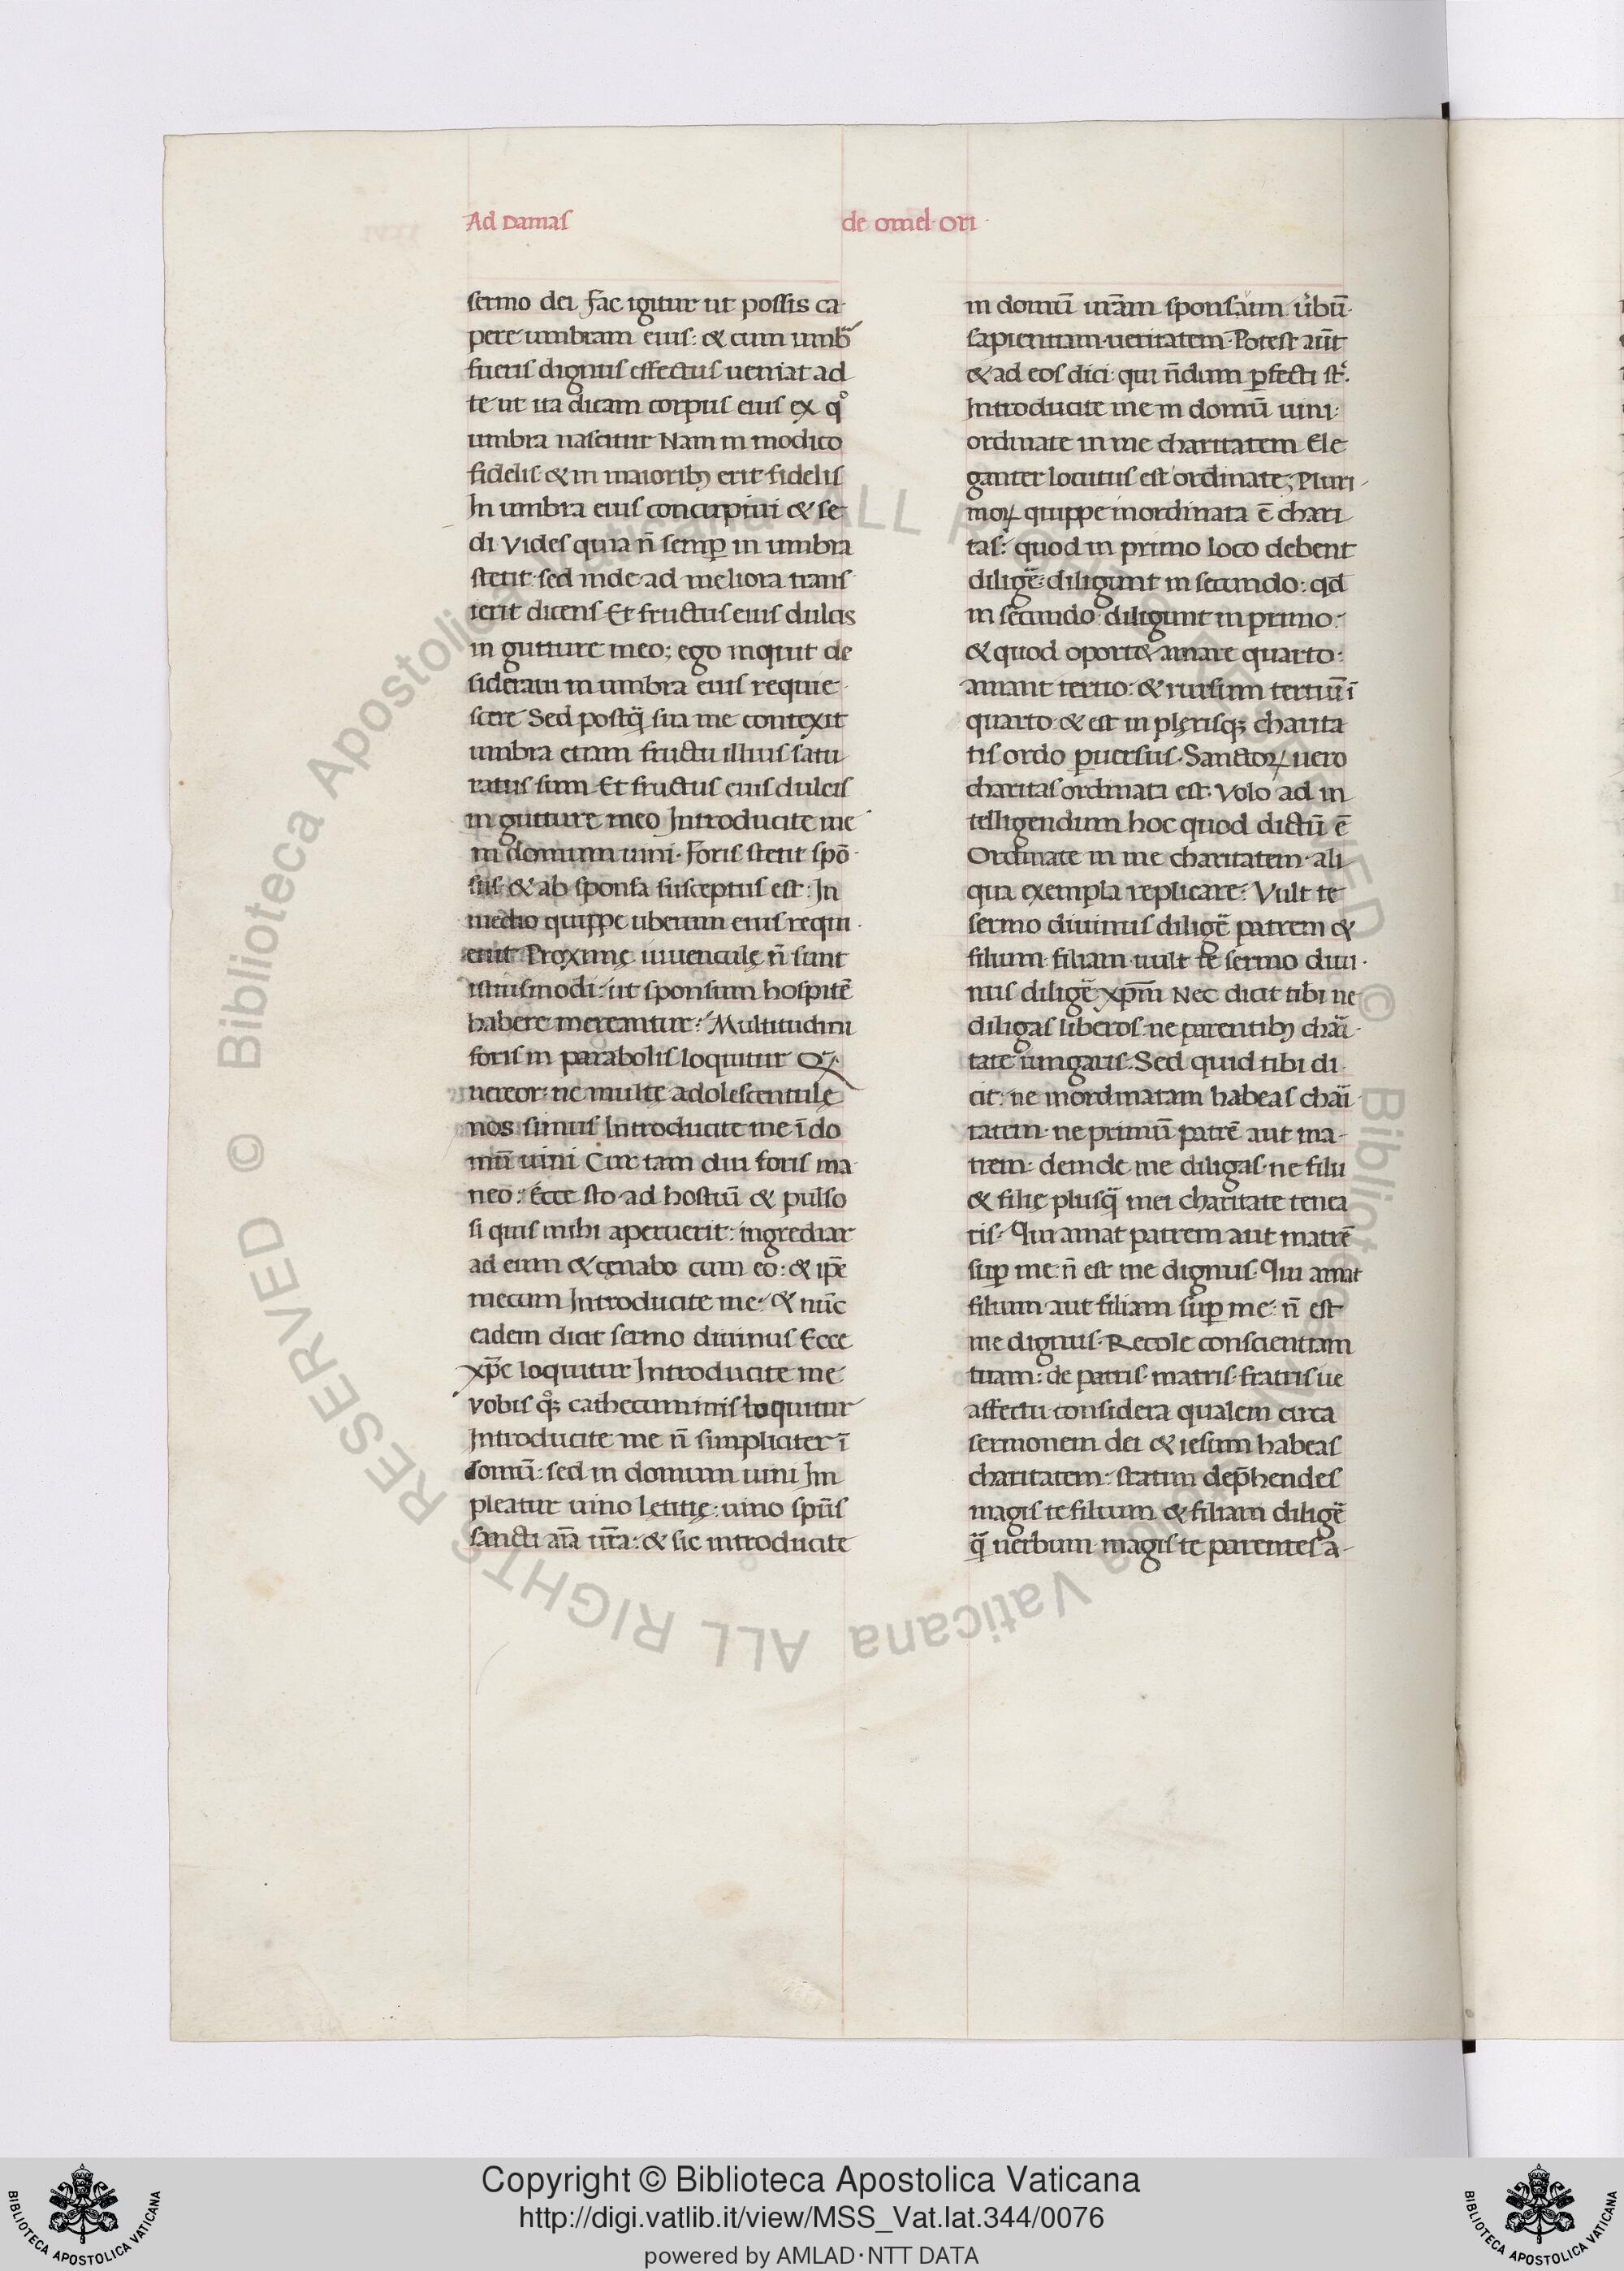 Ad Damas
de omel· ORI·
sermo dei. Fac igitur ut possis ca-
pere umbram eius: & cum umbᷓ
fueris dignus effectus ueniat ad
te ut ita dicam corpus eius ex qͦ
umbra nascitur Nam in modico
fidelis· & in maioribꝫ erit fidelis
In umbra eius concupiui & se-
di Vides quia n̄ semꝑ in umbra
stetit· sed inde· ad meliora trans-
ierit dicens· Et fructus eius dulcis
in gutture meo; ego inquit de
sideraui in umbra eius requie-
scere Sed postq̄ sua me contexit
umbra etiam fructu illius satu
ratus sum· Et fructus eius dulcis
in gutture meo Introducite me
in domum uini· Foris stetit spō-
sus· & ab sponsa susceptus est: In
medio quippe uberum eius requi-
euit· Proximę iuuenculę n̄ sunt
istiusmodi: ut sponsum hospitē
habere mereantur: Multitudini
foris in parabolis loquitur Qꝫ
uereor: ne multę adolescentulę
nos simus Introducite me ī do
mū uini Cur tam diu foris ma-
neo: Ecce sto· ad hostiū & pulso
si quis mihi aperuerit: ingrediar
ad eum & cęnabo cum eo: & ip̄e
mecum Introducite me: & nūc
eadem dicit sermo diuinus Ecce
xp̄c loquitur Introducite me
vobis qͦꝫ cathecuminis loquitur
Introducite me n̄ simpliciter ī
domū: sed in domum uini Im
pleatur uino lętitię: uino sp̄us
sancti aīa ur̄a: & sic introducite
in domū ur̄am sponsum u̓bū·
sapientiam· ueritatem· Potest aūt
& ad eos dici: qui n̄dum ꝑfecti st̓.
Introducite me in domū uini:
ordinate in me charitatem Ele
ganter locutus est ordinate; Pluri-
moꝝ quippe inordinata ē chari
tas: quod in primo loco debent
diligē: diligunt in secundo: qd̄
in secundo· diligunt in primo:
& quod oport& amare quarto:
amant tertio: & rursum tertiū ī
quarto· & est in plęrisqꝫ charita
tis ordo ꝑuersus· Sanctoꝝ uero
charitas ordinata est· Volo ad in
telligendum hoc quod dictū ē
Ordinate in me charitatem· ali
qua exempla replicare: Vult te
sermo diuinus diligē patrem &
filium· filiam· uult te sermo diui-
nus diligē xp̄m̄ Nec dicit tibi ne
diligas liberos· ne parentibꝫ chaī-
tate iungaris· Sed quid tibi di
cit: ne inordinatam habeas chaī-
tatem· ne primū patrē aut ma-
trem: deinde me diligas· ne filii
& filię plusq̄ mei charitate tenea
ris· Qui amat patrem aut matrē
suꝑ me: n̄ est me dignus· Qui amat
filium· aut filiam suꝑ me: n̄ est
me dignus· Recole conscientiam
tuam: de patris· matris· fratris ue
affectu· considera qualem circa
sermonem dei & iesum habeas
charitatem: statim dep̄hendes
magis te filium & filiam diligē
q̄ uerbum· magis te parentes a-
Copyright © Biblioteca Apostolica Vaticana
http://digi.vatlib.it/view/MSS_Vat.lat.344/0076
powered by AMLAD·NTT DATA
BIBLIOTECA APOSTOLICA VATICANA
BIBLIOTECA APOSTOLICA VATICANA
© Biblioteca Apostolica Vaticana ALL RIGHTS RESERVED
© Biblioteca Apostolica Vaticana ALL RIGHTS RESERVED